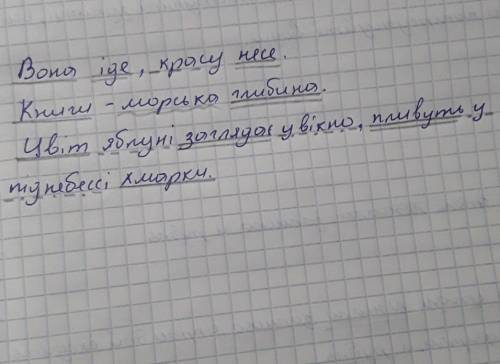 Вона іде, красу несе.
Книги - морська глибина.
Цвіт яблуні заглядає у вікно, пливуть у
піднебессі хмарки.